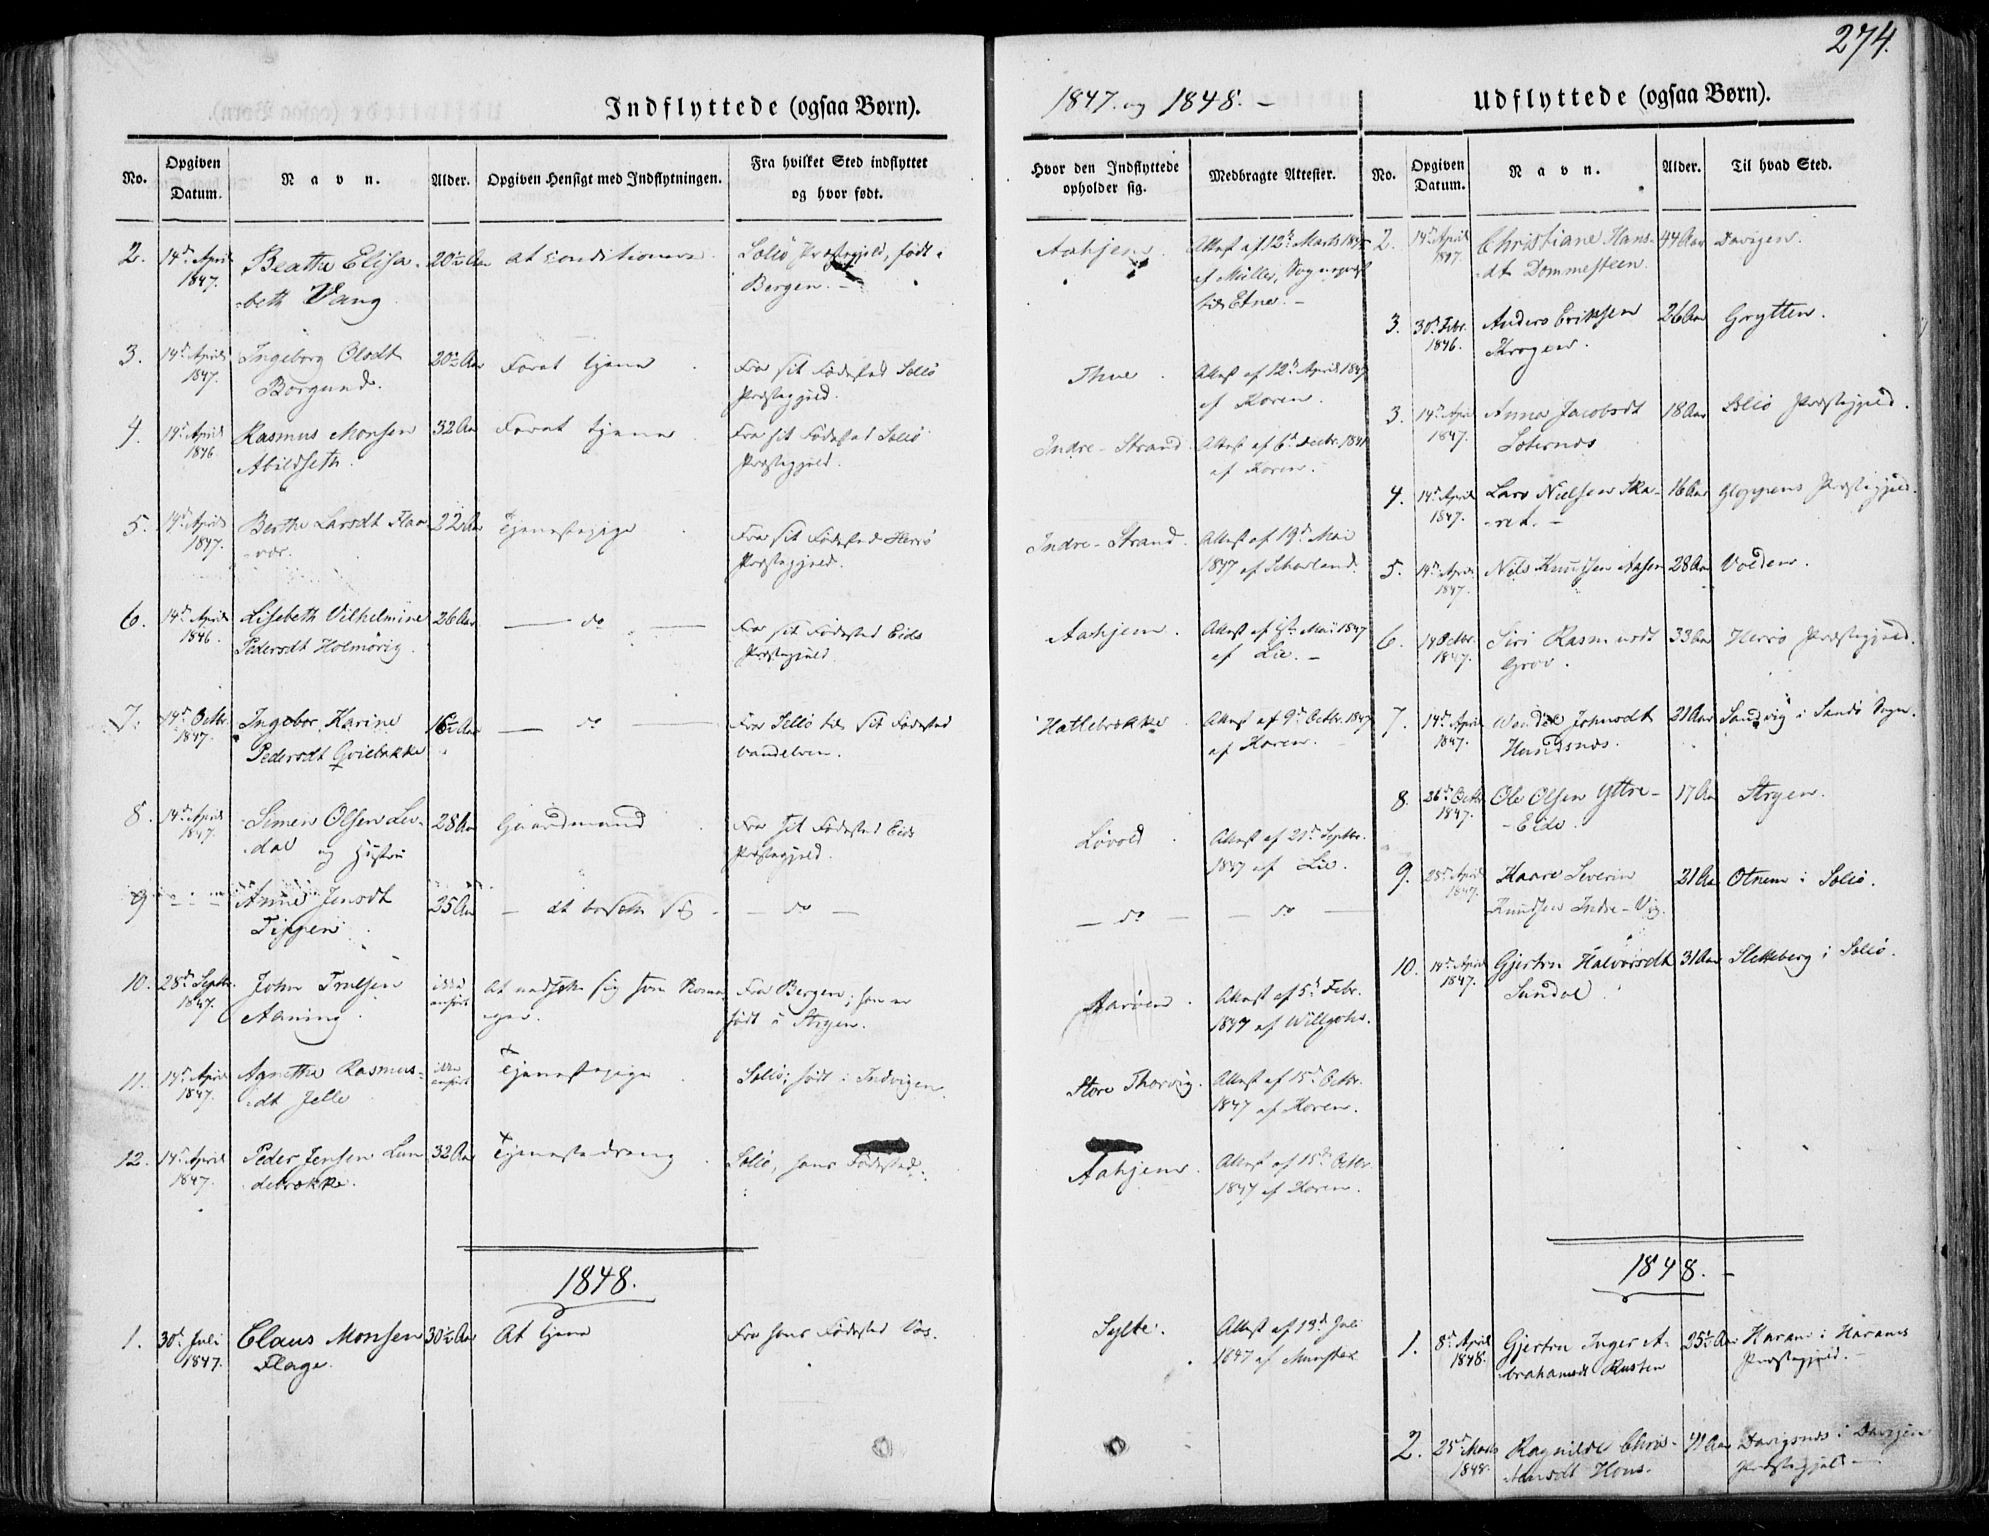 274.
Indflyttede (ogsaa Børn).
1847. og 1848. –
Udflyttede (ogsaa Børn).
No.
Opgiven Datum.
Navn.
Alder.
Opgiven Hensigt med Indflytningen.
Fra hvilket Sted indflyttet og hvor født.
Hvor den Indflyttede opholder sig.
Medbragte Attester.
No.
Opgiven Datum.
Navn.
Alder.
Til hvad Sted.
2. 14de April Beathe Elisa- 20½ Aar at conditionere Seliø Præstegjeld, født i Aahjem Attest af 12te Marts
1847. -beth Vang Bergen. – af Møller, Sogneprest
til Etne. –
3. 14de April Ingeborg Olsdt 20½ Aar Forat tjene Fra sit Fødested Seliø Thue Attest af 12te April 1847
1847. Borgund. Præstegjeld. af Koren.
4. 14de April Rasmus Monsen 32 Aar Forat tjene Fra sit Fødested Seliø Indre-Strand Attest af 6te
1846 Abildseth. Præstegjeld. af Koren.
5. 14de April Berthe Larsdt Flaa- 22 Aar Tjenestepige Fra sit Fødested Herrø Indre-Strand. Attest af 19de Mai
1847. -vær. Præstegjeld. 1847 af
6. 14de April Lisebeth Vilhelmine 26 Aar – do – Fra sit Fødested Eids Aahjem. Attest af Mai 1847
1846. Pedersdt Holmørig. Præstegjeld af Lie. –
7. 14de Octbr. Ingebor Karine 16½ Aar – do – Fra Selliø til sit Fødested Hatlebrække Attest af 9de Octbr. 1847
1847. Pedersdt Qviebakke Vandelven. af Koren. –
8. 14de April Simen Olsen Lev- 28 Aar Gaardmand Fra sit Fødested Eids Løvold Attest af 21de Septbr.
1847. -dal og Hustru Præstegjeld. 1847 af Lie.
9 Anne Jensdt 25 Aar – at bosætte sig – – do – – do – – do –
Tippen
10. 28de Septbr. John Truelsen ikke At nedsætte sig som Fra Bergen; han er Aarøen Attest af 5te Febr.
1847. Aaning anført født i Stryen. 1847 af Willgohs.
11. 14de April Agnethe Rasmus- ikke Tjenestepige Seliø, født i Indvigen. Store Thorvig. Attest af 15de Octbr.
1847. -dt Jelle anført 1847 af Koren.
12. 14de April Peder Jensen Lun- 32 Aar Tjenestedreng Seliø, hans Fødested. Aahjem. Attest af 15de Octbr.
1847. debrække. 1847 af Koren.
1848.
1. 30te Juli Claus Monsen 30½ Aar At tjene Fra hans Fødested Vos. Sylte. Attest af 13de Juli
1847. Flage. 1847 af Munster
2. 14de April Christiane Hans- 44 Aar Davigen.
1847 -dt Dommesteen.
3. 30te Febr. Anders Eriksen 26 Aar Grytten.
1846. Krogen.
3. 14de April Anna Jacobsdt 18 Aar Seliø Præstegjeld.
1847.
4. 14de April Lars Nielsen Ska- 16 Aar Gloppens Præstegjeld.
1847. -ret. –
5. 14de April Nils Knudsen Aasen 28 Aar Volden.
1847.
6. 14 Octbr. Siri Rasmusdt 33 Aar Herrø Præstegjeld.
1847. Grov.
7. 14de April Johnsdt 21 Aar Sandvig i Sandø Sogn.
1847. Hundsnes.
8. 26de Octbr. Ole Olsen Yttre- 17 Aar Stryen.
1847. -Eide.
9. 28de April Kaare Severin 21 Aar Otnem i Seliø.
1847. Knudsen Indre-Vig.
10. 14de April Gjertru Halvorsdt 31 Aar Sletteberg i Seliø.
1847. Sundal.
1848. –
1. 8de April Gjertru Inger A- 25½ Aar Haram i Harams
1848. -brahamsdt Rusten Præstegjeld. –
2. 25de Marts Ragnilde Chris- 41 Aar Davigsnes i Davigen
1848. -tensdt Hons. Præstegjeld –